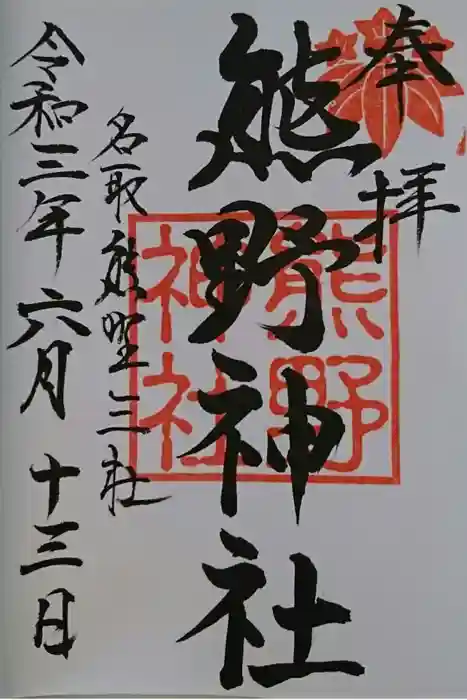 奉拝
熊野神社
熊野
神社
名取熊野三社
令和三年六月十三日